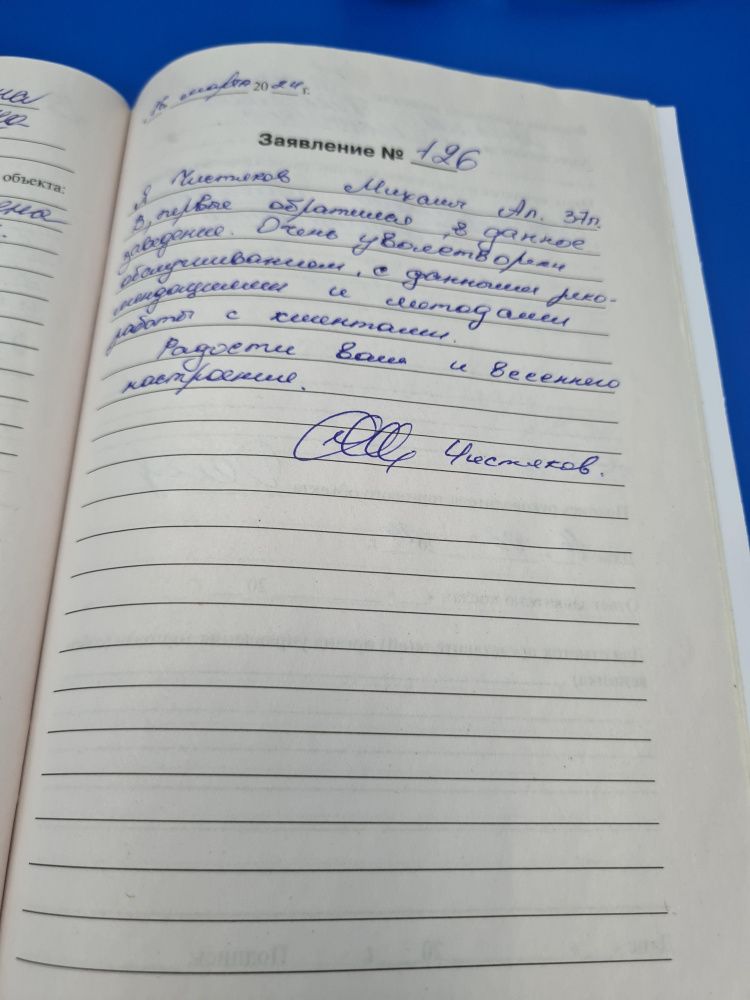 на
на
объекта:
ена
16 марта 2024 г.
Заявление № 126
Я Чистяков Михаил Ал. 37л.
В,первые обратился в данное
заведение. Очень уволетворен
обслуживанием, с данными реко-
мендациями и методами
работы с клиентами.
Радости Вам и весеннего
настроение.
Чистяков.